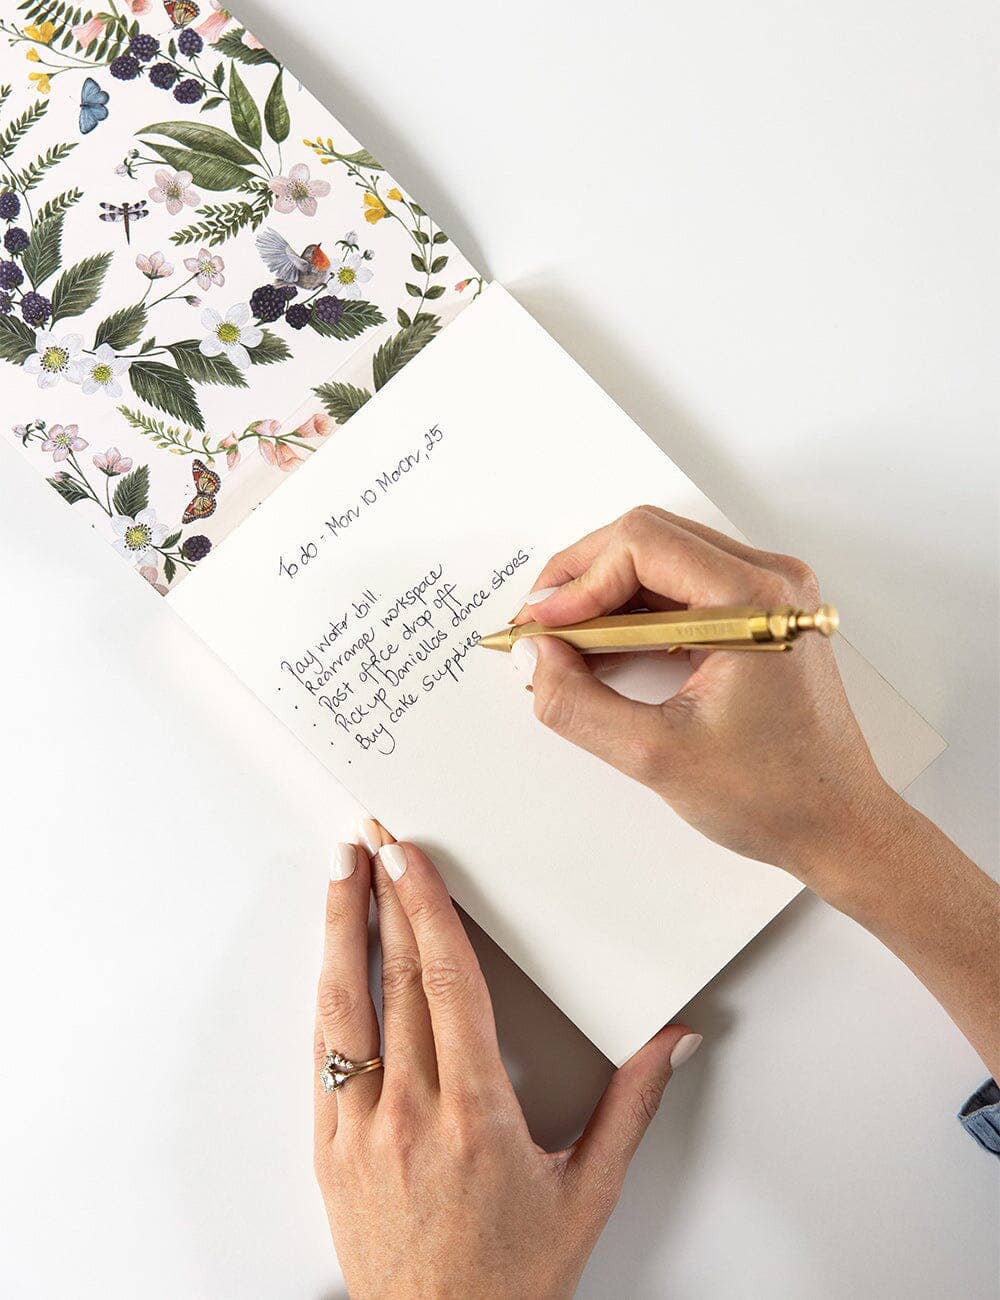 To do - Mon 10 March, 25
· Pay water bill.
· Rearrange workspace
· Post office drop off
· Pick up Daniellas dance shoes.
· Buy cake supplies